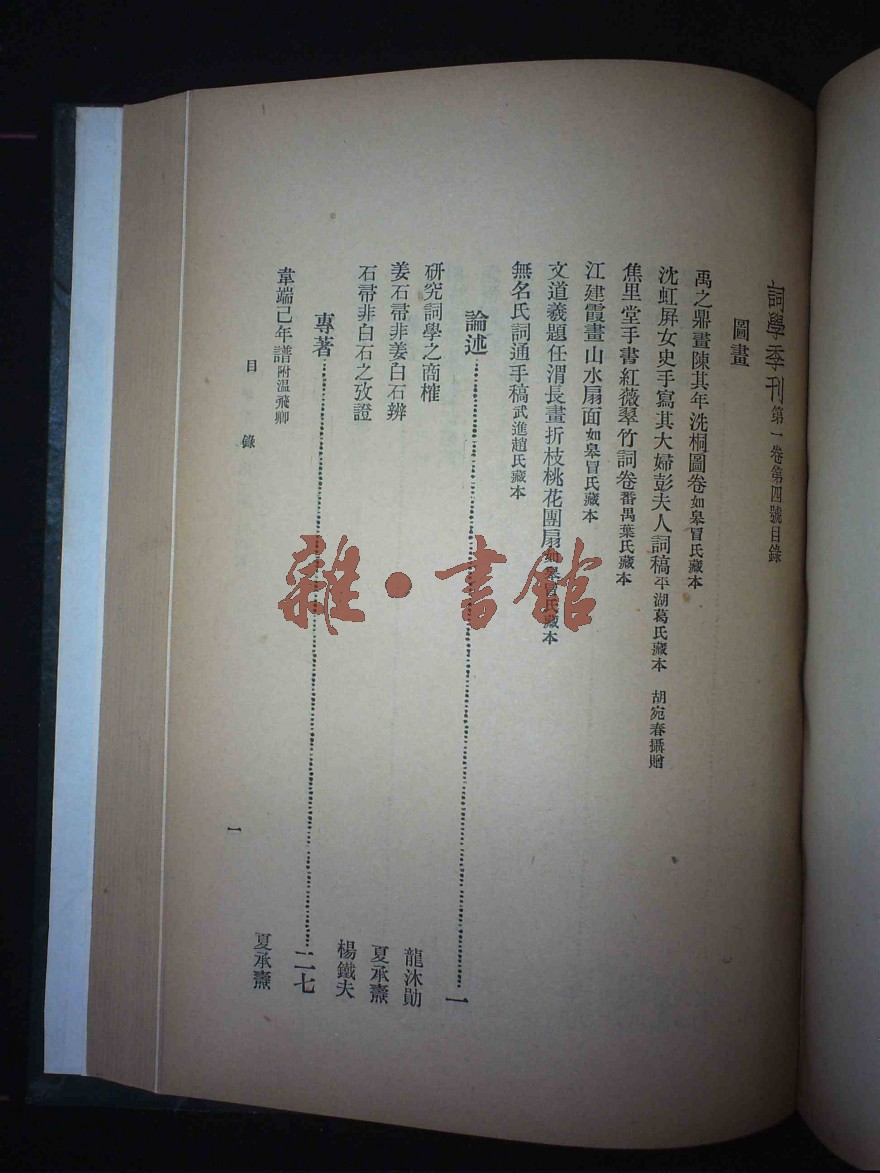 詞學季刊第一卷第四號目錄
圖畫
禹之鼎畫陳其年洗桐圖卷如皋冒氏藏本
沈虹屏女史手寫其大婦彭夫人詞稿平湖葛氏藏本 胡宛春攝贈
焦里堂手書紅薇翠竹詞卷番禺葉氏藏本
江建霞畫山水扇面如皋冒氏藏本
文道羲題任渭長畫折枝桃花團扇如皋冒氏藏本
無名氏詞通手稿武進趙氏藏本
論述 一
研究詞學之商榷 龍沐勛
姜石帚非姜白石辨 夏承燾
石帚非白石之攷證 楊鐵夫
專著 二七
韋端己年譜附溫飛卿 夏承燾
目錄
一
雜·書館